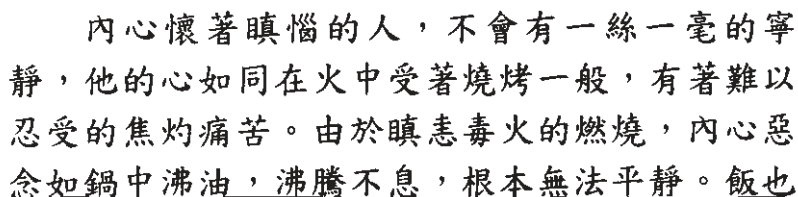 內心懷著瞋惱的人，不會有一絲一毫的寧
靜，他的心如同在火中受著燒烤一般，有著難以
忍受的焦灼痛苦。由於瞋恚毒火的燃燒，內心惡
念如鍋中沸油，沸騰不息，根本無法平靜。飯也